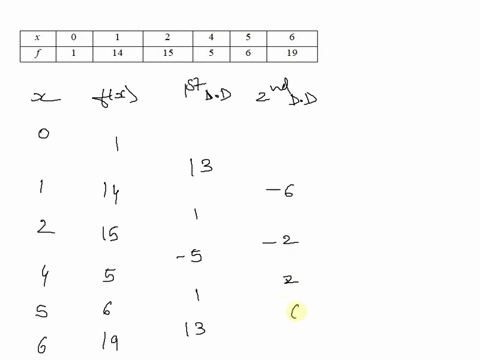 x 0 1 2 4 5 6
f 1 14 15 5 6 19
x f(x) 1st D.D 2nd D.D
0
1
13
1 14 -6
1
2 15
-2
-5
4 5 2
1
5 6
13
6 19